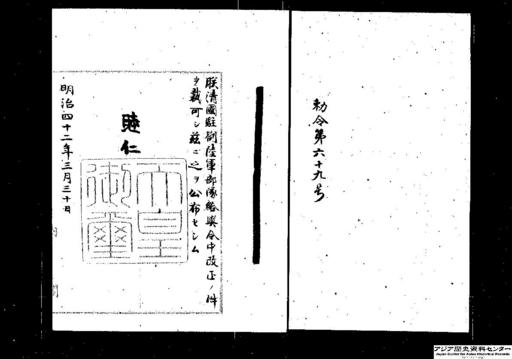 勅令第六十九号
朕清國駐劄陸軍部隊給與令中改正ノ件
ヲ裁可シ茲ニ之ヲ公布セシム
睦仁
天皇
御璽
明治四十二年三月三十日
内
アジア歴史資料センター
Japan Center for Asian Historical Records